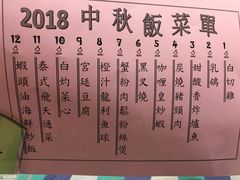 2018 中秋飯菜單
1 白切雞
2 乳鴿
3 甜酸香炸爐魚
4 炭燒豬頸肉
5 咖喱皇炒蝦
6 黑叉燒
7 蟹粉肉鬆粉絲煲
8 橙汁龍利魚球
9 宮廷豆腐
10 白灼菜心
11 泰式飛天通菜
12 蝦頭油海鮮炒飯